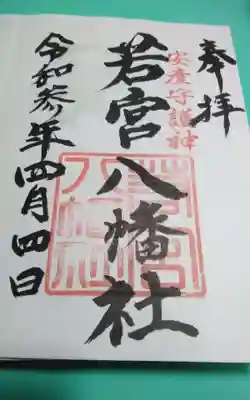 奉拝
安産守護神
若宮八幡社
若宮八幡社
令和参年四月四日